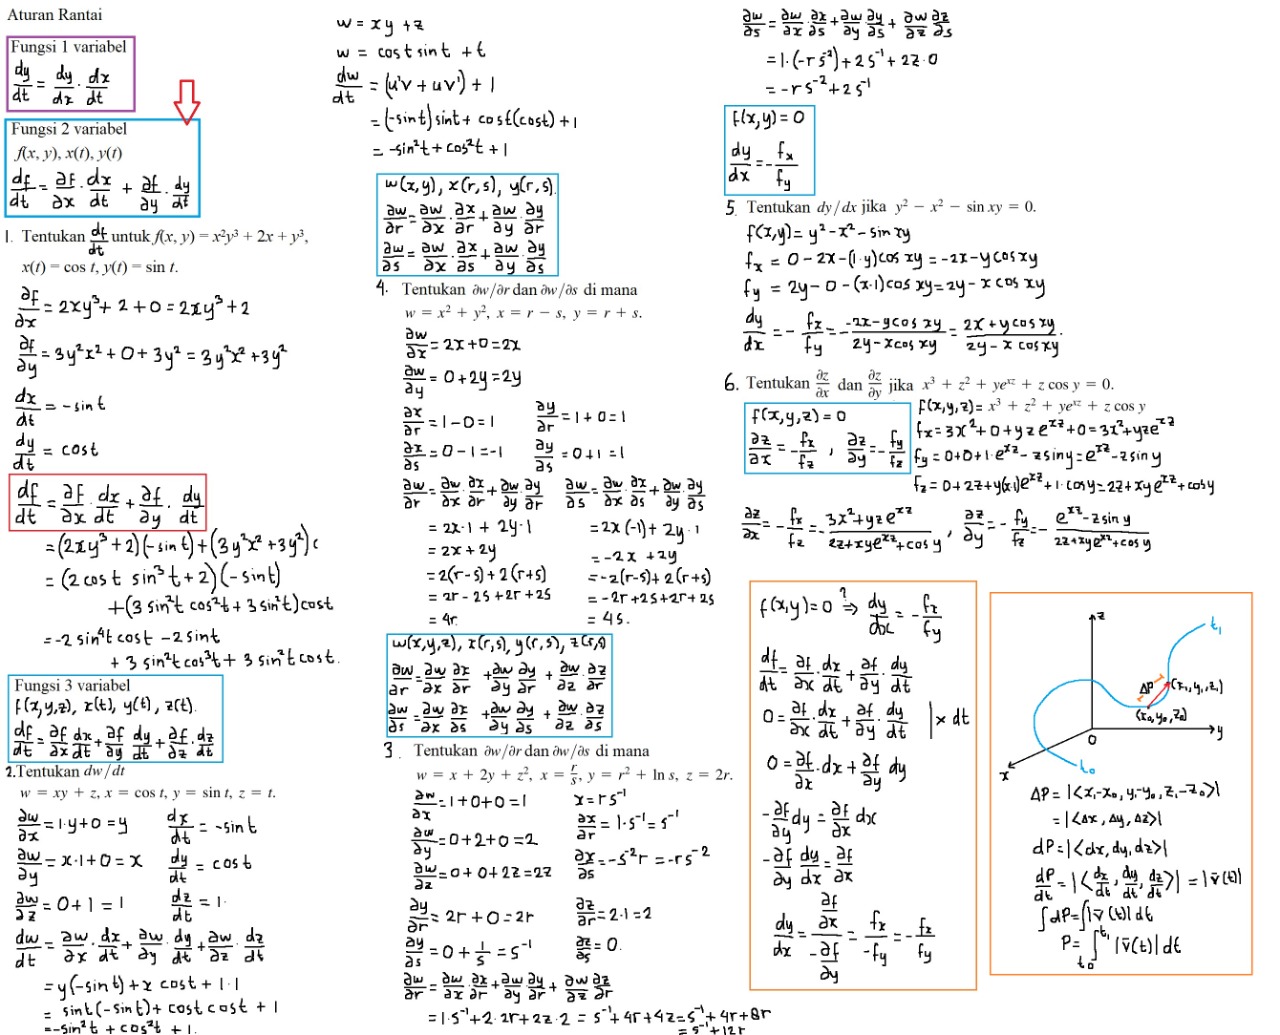 Aturan Rantai
Fungsi 1 variabel
dy/dt = dy/dx · dx/dt
Fungsi 2 variabel
f(x, y), x(t), y(t)
df/dt = ∂f/∂x · dx/dt + ∂f/∂y · dy/dt
1. Tentukan df/dt untuk f(x, y) = x²y³ + 2x + y³,
x(t) = cos t, y(t) = sin t.
∂f/∂x = 2xy³ + 2 + 0 = 2xy³ + 2
∂f/∂y = 3y²x² + 0 + 3y² = 3y²x² + 3y²
dx/dt = -sin t
dy/dt = cos t
df/dt = ∂f/∂x · dx/dt + ∂f/∂y · dy/dt
= (2xy³ + 2)(-sin t) + (3y²x² + 3y²) c
= (2 cos t sin³t + 2)(-sin t)
+ (3 sin²t cos²t + 3 sin²t) cos t
= -2 sin⁴t cos t - 2 sin t
+ 3 sin²t cos³t + 3 sin²t cos t.
Fungsi 3 variabel
f(x,y,z), x(t), y(t), z(t).
df/dt = ∂f/∂x dx/dt + ∂f/∂y dy/dt + ∂f/∂z · dz/dt
2. Tentukan dw/dt
w = xy + z, x = cos t, y = sin t, z = t.
∂w/∂x = 1·y + 0 = y    dx/dt = -sin t
∂w/∂y = x·1 + 0 = x    dy/dt = cos t
∂w/∂z = 0 + 1 = 1    dz/dt = 1.
dw/dt = ∂w/∂x · dx/dt + ∂w/∂y · dy/dt + ∂w/∂z · dz/dt
= y(-sin t) + x cos t + 1·1
= sin t(-sin t) + cos t cos t + 1
= -sin²t + cos²t + 1.
w = xy + z
w = cos t sin t + t
dw/dt = (u'v + uv') + 1
= (-sin t) sin t + cos t (cos t) + 1
= -sin²t + cos²t + 1
w(x,y), x(r,s), y(r,s).
∂w/∂r = ∂w/∂x · ∂x/∂r + ∂w/∂y · ∂y/∂r
∂w/∂s = ∂w/∂x · ∂x/∂s + ∂w/∂y · ∂y/∂s
4. Tentukan ∂w/∂r dan ∂w/∂s di mana
w = x² + y², x = r − s, y = r + s.
∂w/∂x = 2x + 0 = 2x
∂w/∂y = 0 + 2y = 2y
∂x/∂r = 1 - 0 = 1    ∂y/∂r = 1 + 0 = 1
∂x/∂s = 0 - 1 = -1    ∂y/∂s = 0 + 1 = 1
∂w/∂r = ∂w/∂x · ∂x/∂r + ∂w/∂y · ∂y/∂r    ∂w/∂s = ∂w/∂x · ∂x/∂s + ∂w/∂y · ∂y/∂s
= 2x·1 + 2y·1    = 2x(-1) + 2y·1
= 2x + 2y    = -2x + 2y
= 2(r-s) + 2(r+s)    = -2(r-s) + 2(r+s)
= 2r - 2s + 2r + 2s    = -2r + 2s + 2r + 2s
= 4r    = 4s.
w(x,y,z), x(r,s), y(r,s), z(r,s)
∂w/∂r = ∂w/∂x ∂x/∂r + ∂w/∂y ∂y/∂r + ∂w/∂z · ∂z/∂r
∂w/∂s = ∂w/∂x ∂x/∂s + ∂w/∂y ∂y/∂s + ∂w/∂z · ∂z/∂s
3. Tentukan ∂w/∂r dan ∂w/∂s di mana
w = x + 2y + z², x = r/s, y = r² + ln s, z = 2r.
∂w/∂x = 1 + 0 + 0 = 1    x = r s⁻¹
∂w/∂y = 0 + 2 + 0 = 2    ∂x/∂r = 1·s⁻¹ = s⁻¹
∂w/∂z = 0 + 0 + 2z = 2z    ∂x/∂s = -s⁻²r = -rs⁻²
∂y/∂r = 2r + 0 = 2r    ∂z/∂r = 2·1 = 2
∂y/∂s = 0 + 1/s = s⁻¹    ∂z/∂s = 0.
∂w/∂r = ∂w/∂x · ∂x/∂r + ∂w/∂y ∂y/∂r + ∂w/∂z ∂z/∂r
= 1·s⁻¹ + 2·2r + 2z·2 = s⁻¹ + 4r + 4z = s⁻¹ + 4r + 8r
= s⁻¹ + 12r
∂w/∂s = ∂w/∂x · ∂x/∂s + ∂w/∂y ∂y/∂s + ∂w/∂z ∂z/∂s
= 1·(-rs⁻²) + 2s⁻¹ + 2z·0
= -rs⁻² + 2s⁻¹
f(x,y) = 0
dy/dx = - fx/fy
5. Tentukan dy/dx jika y² − x² − sin xy = 0.
f(x,y) = y² - x² - sin xy
fx = 0 - 2x - (1·y) cos xy = -2x - y cos xy
fy = 2y - 0 - (x·1) cos xy = 2y - x cos xy
dy/dx = - fx/fy = - (-2x - y cos xy)/(2y - x cos xy) = (2x + y cos xy)/(2y - x cos xy).
6. Tentukan ∂z/∂x dan ∂z/∂y jika x³ + z² + yeˣᶻ + z cos y = 0.
f(x,y,z) = 0
∂z/∂x = - fx/fz , ∂z/∂y = - fy/fz
f(x,y,z) = x³ + z² + yeˣᶻ + z cos y
fx = 3x² + 0 + yzeˣᶻ + 0 = 3x² + yzeˣᶻ
fy = 0 + 0 + 1·eˣᶻ - z sin y = eˣᶻ - z sin y
fz = 0 + 2z + y(x·1)eˣᶻ + 1·cos y = 2z + xyeˣᶻ + cos y
∂z/∂x = - fx/fz = - (3x² + yzeˣᶻ)/(2z + xyeˣᶻ + cos y) , ∂z/∂y = - fy/fz = - (eˣᶻ - z sin y)/(2z + xyeˣᶻ + cos y)
f(x,y) = 0 ⇒? dy/dx = - fx/fy
df/dt = ∂f/∂x · dx/dt + ∂f/∂y · dy/dt
0 = ∂f/∂x · dx/dt + ∂f/∂y · dy/dt | × dt
0 = ∂f/∂x · dx + ∂f/∂y dy
-∂f/∂y dy = ∂f/∂x dx
-∂f/∂y dy/dx = ∂f/∂x
dy/dx = (∂f/∂x)/(-∂f/∂y) = fx/-fy = - fx/fy
z
t₁
ΔP
(x₁,y₁,z₁)
(x₀,y₀,z₀)
0
y
x
t₀
ΔP = |<x₁-x₀, y₁-y₀, z₁-z₀>|
= |<Δx, Δy, Δz>|
dP = |<dx, dy, dz>|
dP/dt = |<dx/dt, dy/dt, dz/dt>| = |v̄(t)|
∫dP = ∫|v̄(t)| dt
P = ∫t₀^t₁ |v̄(t)| dt